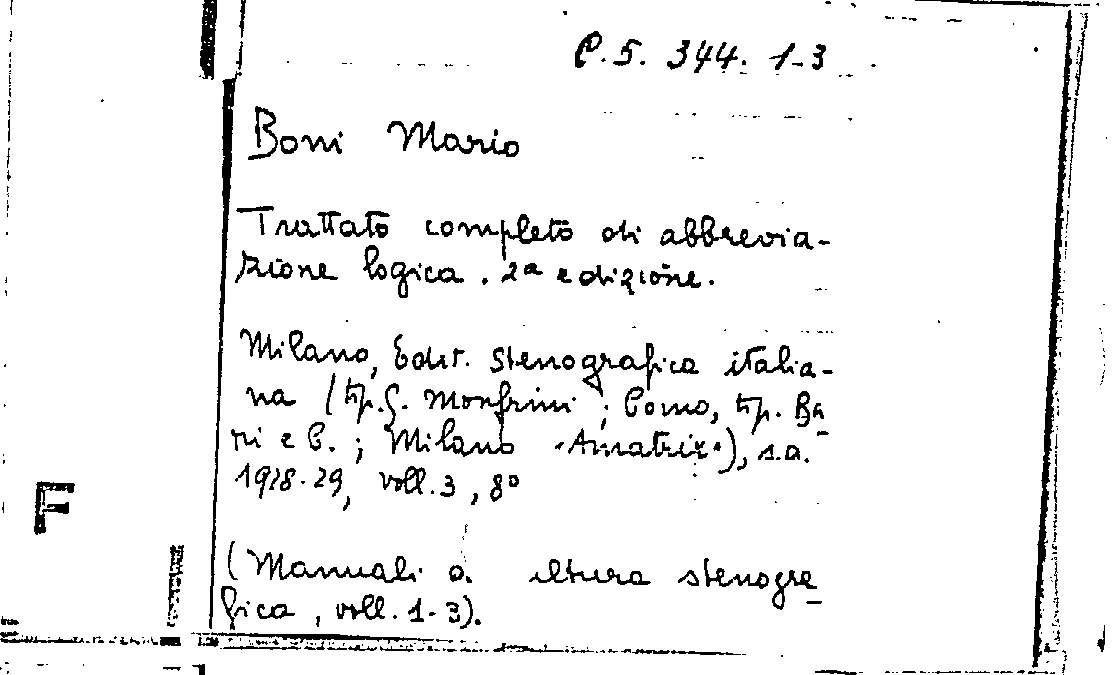 C.5. 344. 1-3
Boni Mario
Trattato completo di abbrevia-
zione logica. 2ª edizione.
Milano, Edit. stenografica italia-
na (tip. G. Monfrini; Como, tip. Ba
ri e C.; Milano "Amatrix"), s.a.
1928-29, voll. 3, 8º
F
(Manuali o. ltura stenogra
fica, voll. 1-3).